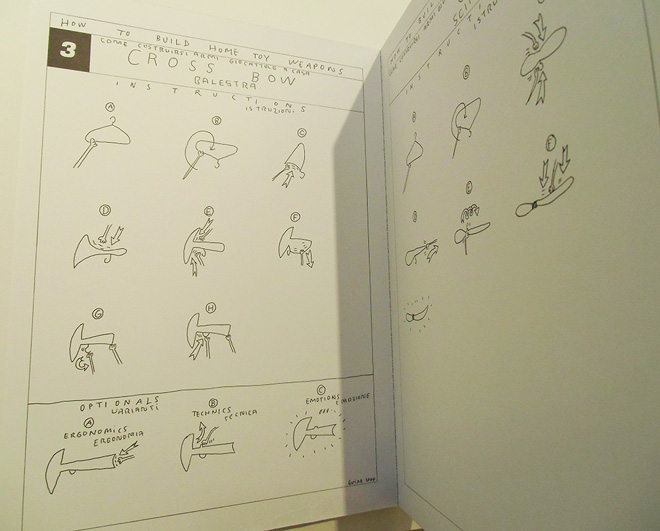 HOW TO BUILD HOME TOY WEAPONS
3
COME COSTRUIRSI ARMI GIOCATTOLO A CASA
CROSS BOW
BALESTRA
INSTRUCTIONS
ISTRUZIONI
A
B
C
D
E
F
G
H
OPTIONALS
VARIANTI
A
ERGONOMICS
ERGONOMIA
B
TECHNICS
TECNICA
C
EMOTIONS EMOZIONE
HOW TO BUIL
SCI
INSTRUCTI
ISTRU
A
B
D
E
F